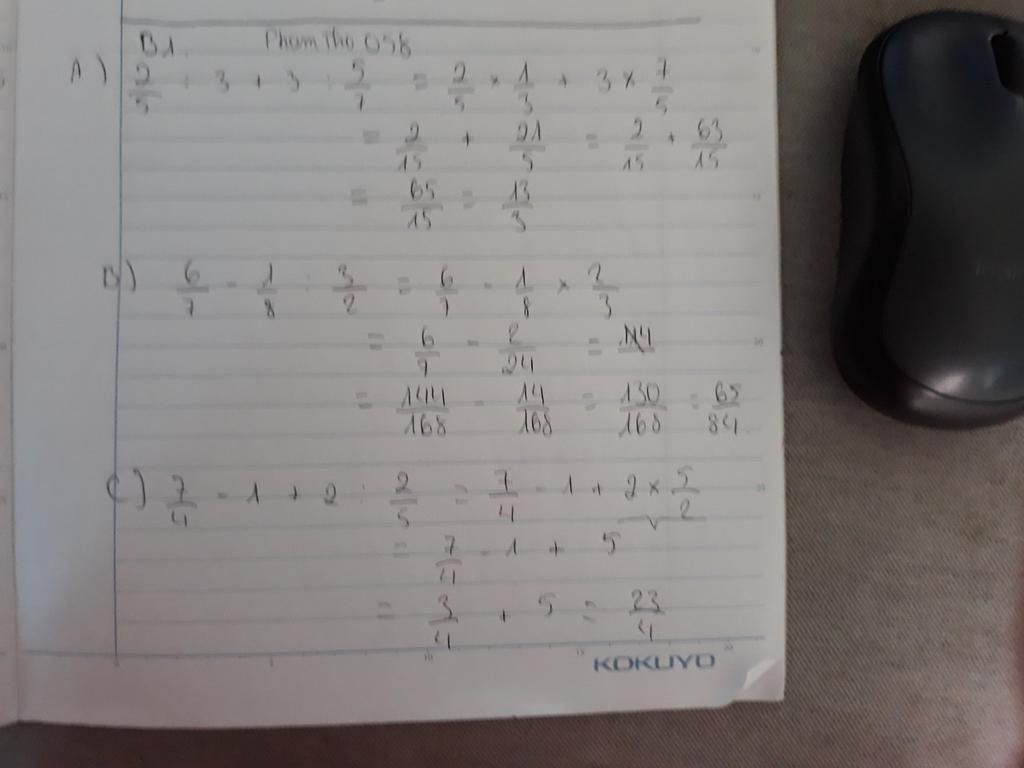 B1. Pham Tho 058
A) 2/5 : 3 + 3 : 5/7 = 2/5 × 1/3 + 3 × 7/5
= 2/15 + 21/5 = 2/15 + 63/15
= 65/15 = 13/3
B) 6/7 - 1/8 : 3/2 = 6/7 - 1/8 × 2/3
= 6/7 - 2/24 =
= 144/168 - 14/168 = 130/168 = 65/84
C) 7/4 - 1 + 2 : 2/5 = 7/4 - 1 + 2 × 5/2
= 7/4 - 1 + 5
= 3/4 + 5 = 23/4
KOKUYO